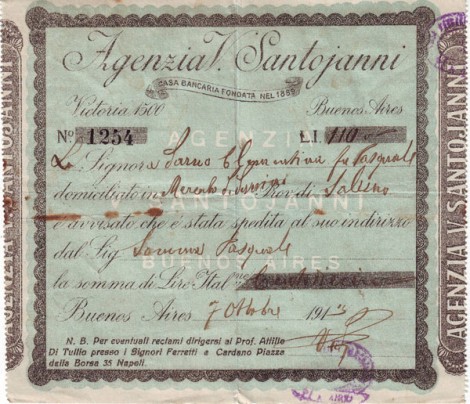 Agenzia V. Santojanni
CASA BANCARIA FONDATA NEL 1889
Victoria 1500 Buenos Aires
No 1254 Lit. 110
AGENZIA
La Signora Sarno Clementina fu Pasquale
domiciliato in Mercato S. Severino Prov. di Salerno
SANTOJANNI
è avvisato che è stata spedita al suo indirizzo
dal Sig. Pasquale
BUENOS AIRES
la somma di Lire Ital.ne
Buenos Aires 7 Ottobre 1913
N. B. Per eventuali reclami dirigersi al Prof. Attilio
Di Tullio presso i Signori Ferretti a Cardano Piazza
della Borsa 35 Napoli.
AGENZIA V. SANTOJANNI
AGENZIA V. SANTOJANNI